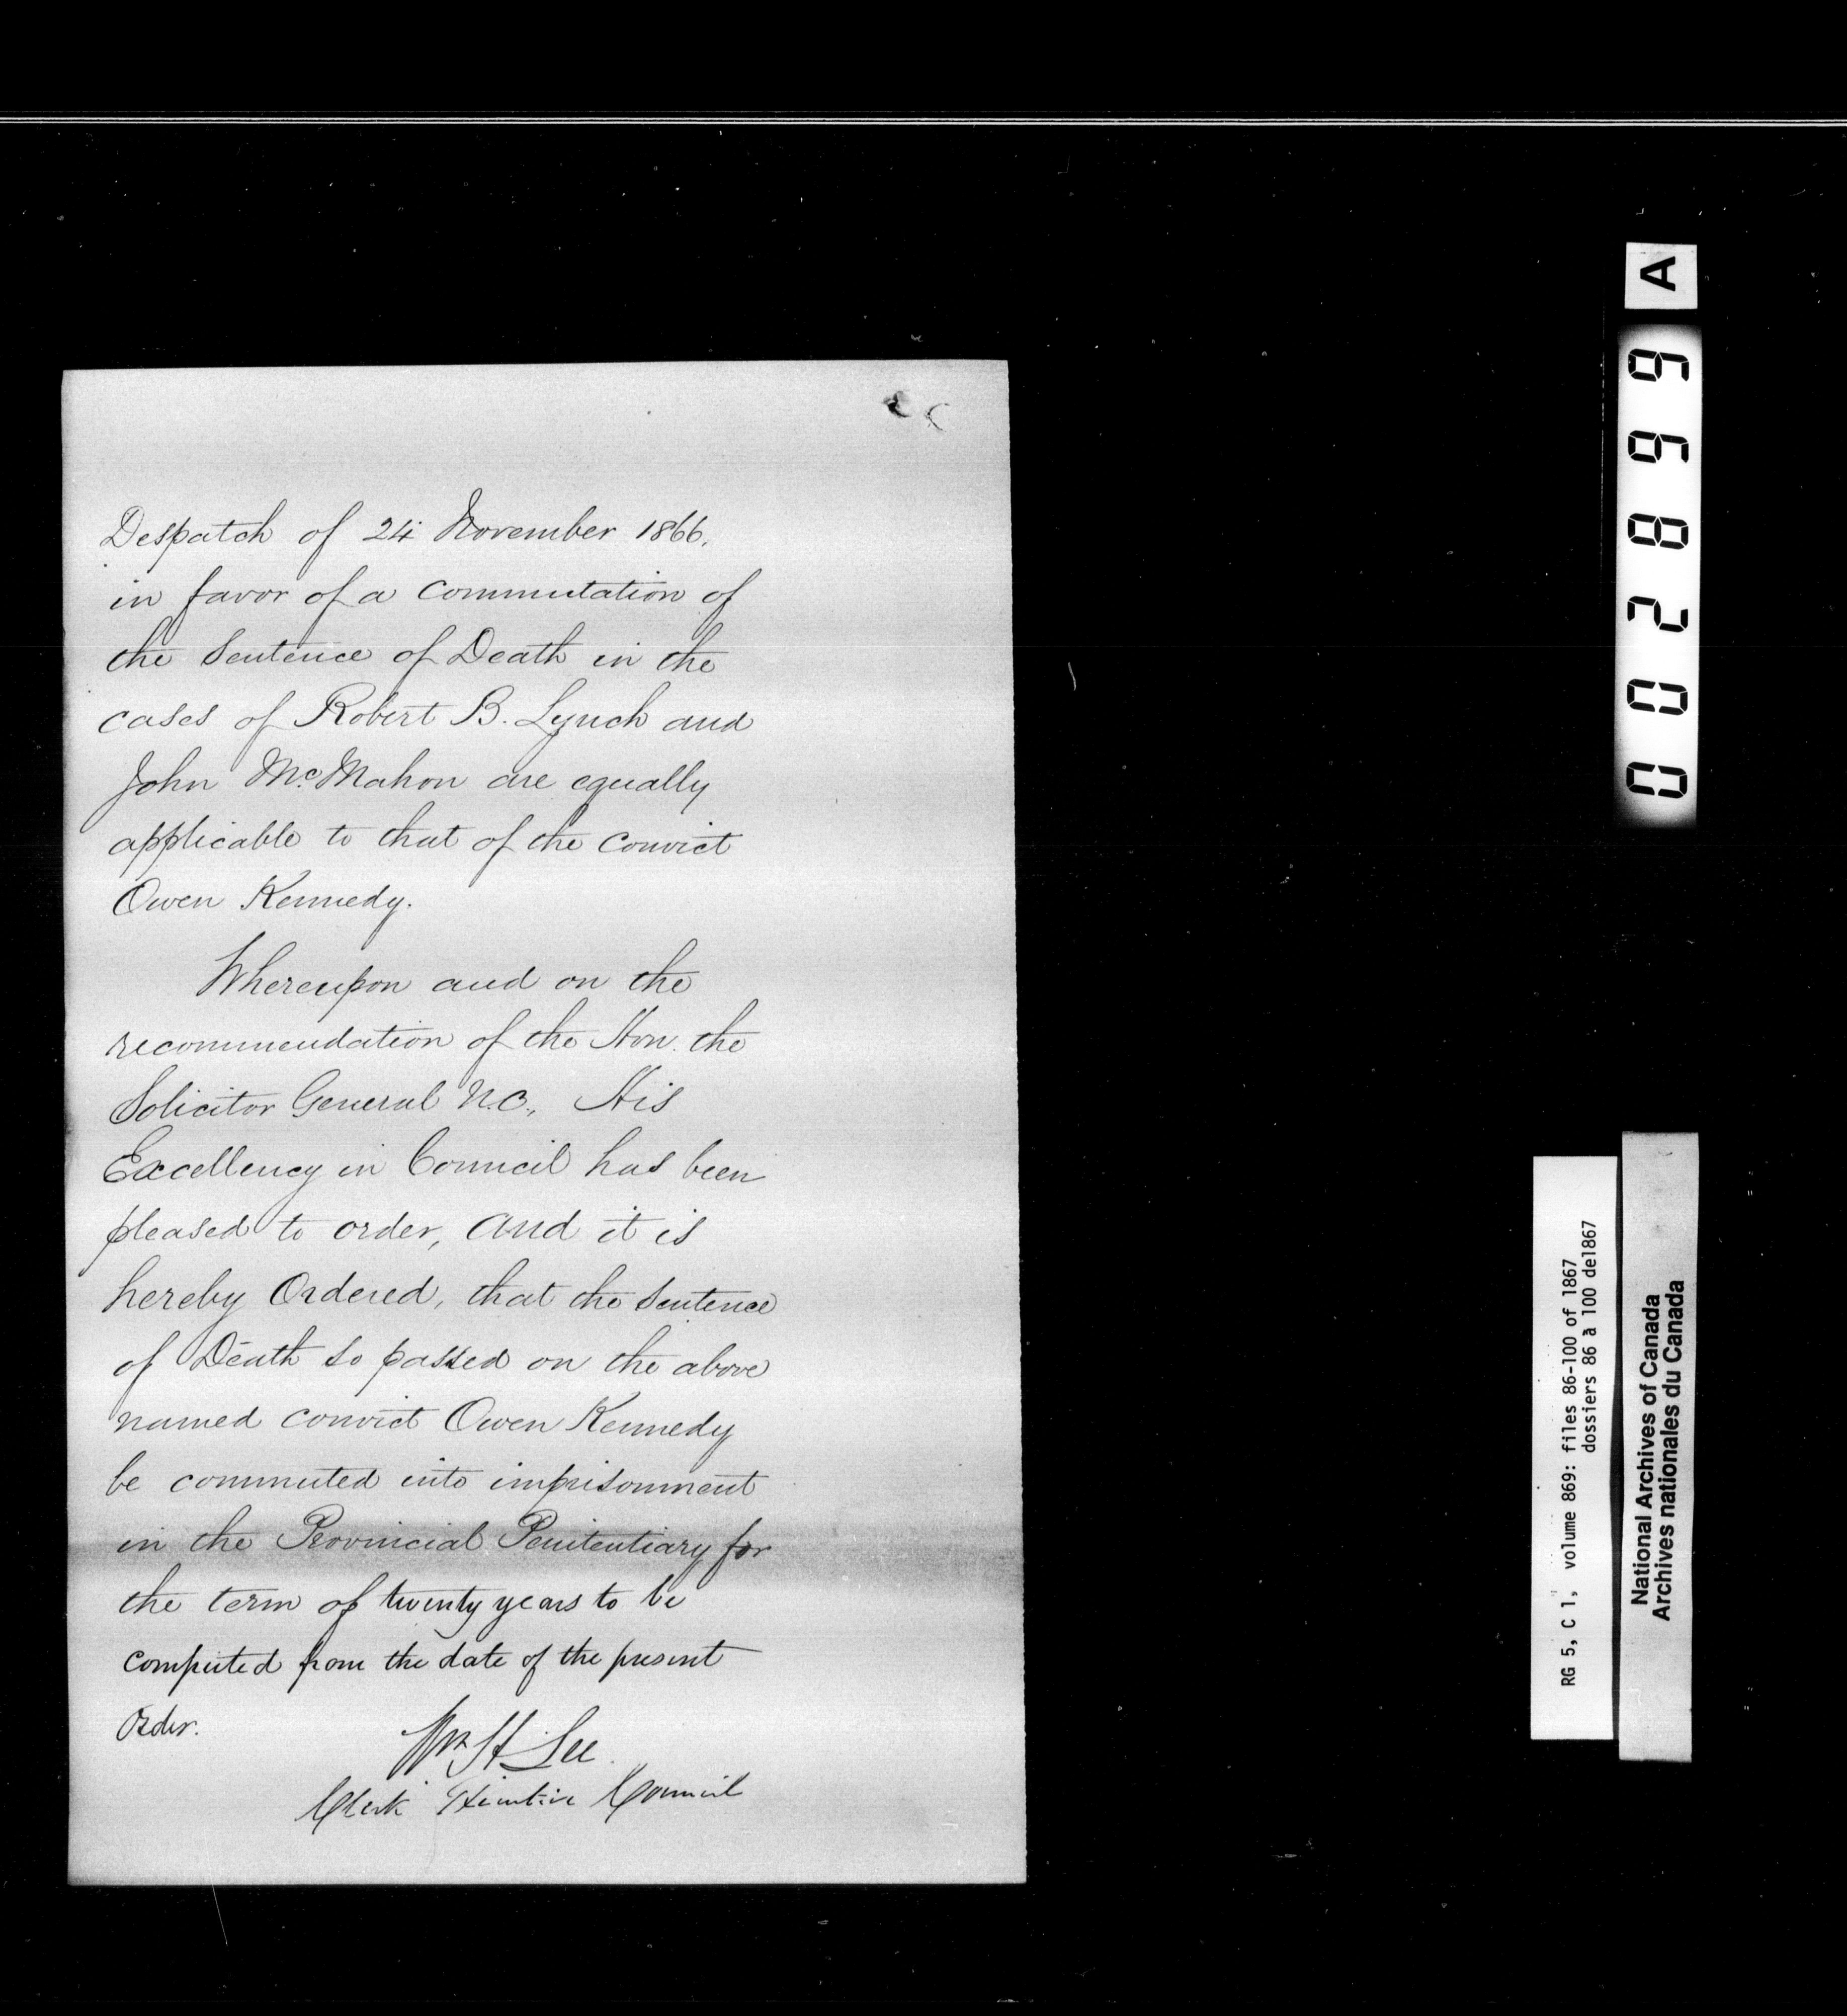 Despatch of 24 November 1866.
in favor of a commutation of
the Sentence of Death in the
cases of Robert B. Lynch and
John McMahon are equally
applicable to that of the convict
Owen Kennedy.
Whereupon and on the
recommendation of the Hon. the
Solicitor General U.C., His
Excellency in Council has been
pleased to order, and it is
hereby Ordered, that the Sentence
of Death so passed on the above
named convict Owen Kennedy
be commuted into imprisonment
in the Provincial Penitentiary for
the term of twenty years to be
computed from the date of the present
Order.
Wm H Lee
Clerk Executive Council
A
002899
RG 5, C 1, volume 869: files 86-100 of 1867
dossiers 86 à 100 de1867
National Archives of Canada
Archives nationales du Canada